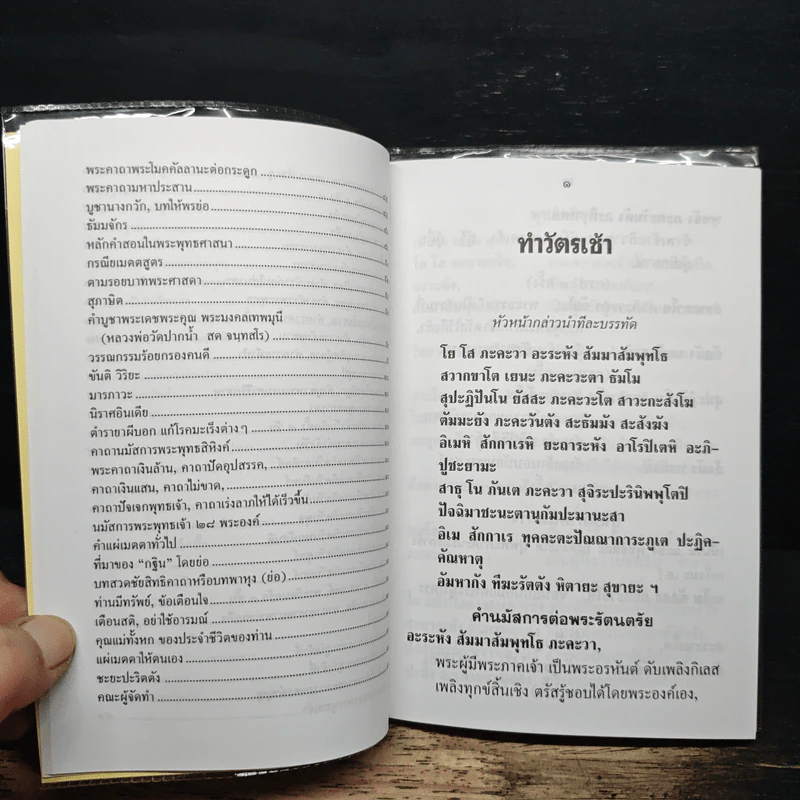 พระคาถาพระโมคคัลลานะต่อกระดูก
พระคาถามหาประสาน
บูชานางกวัก, บทให้พรย่อ
ธัมมจักร
หลักคำสอนในพระพุทธศาสนา
กรณียเมตตสูตร
ตามรอยบาทพระศาสดา
สุภาษิต
คำบูชาพระเดชพระคุณ พระมงคลเทพมุนี
(หลวงพ่อวัดปากน้ำ สด จนฺทสโร)
วรรณกรรมร้อยกรองคนดี
ขันติ วิริยะ
มารภาวะ
นิราศอินเดีย
ตำรายาผีบอก แก้โรคมะเร็งต่างๆ
คาถานมัสการพระพุทธสิหิงค์
พระคาถาเงินล้าน, คาถาปัดอุปสรรค,
คาถาเงินแสน, คาถาไม่ขาด,
คาถาปัจเจกพุทธเจ้า, คาถาเร่งลาภให้ได้เร็วขึ้น
นมัสการพระพุทธเจ้า ๒๘ พระองค์
คำแผ่เมตตาทั่วไป
ที่มาของ "กฐิน" โดยย่อ
บทสวดชัยสิทธิคาถาหรือบทพาหุง (ย่อ)
ท่านมีทรัพย์, ข้อเตือนใจ
เตือนสติ, อย่าใช้อารมณ์
คุณแม่ทั้งหก ของประจำชีวิตของท่าน
แผ่เมตตาให้ตนเอง
ชะยะปะริตตัง
คณะผู้จัดทำ
๑
ทำวัตรเช้า
หัวหน้ากล่าวนำทีละบรรทัด
โย โส ภะคะวา อะระหัง สัมมาสัมพุทโธ
สวากขาโต เยนะ ภะคะวะตา ธัมโม
สุปะฏิปันโน ยัสสะ ภะคะวะโต สาวะกะสังโฆ
ตัมมะยัง ภะคะวันตัง สะธัมมัง สะสังฆัง
อิเมหิ สักกาเรหิ ยะถาระหัง อาโรปิเตหิ อะภิ-
ปูชะยามะ
สาธุ โน ภันเต ภะคะวา สุจิระปะรินิพพุโตปิ
ปัจฉิมาชะนะตานุกัมปะมานะสา
อิเม สักกาเร ทุคคะตะปัณณาการะภูเต ปะฏิค-
คัณหาตุ
อัมหากัง ทีฆะรัตตัง หิตายะ สุขายะ ฯ
คำนมัสการต่อพระรัตนตรัย
อะระหัง สัมมาสัมพุทโธ ภะคะวา,
พระผู้มีพระภาคเจ้า เป็นพระอรหันต์ ดับเพลิงกิเลส
เพลิงทุกข์สิ้นเชิง ตรัสรู้ชอบได้โดยพระองค์เอง,